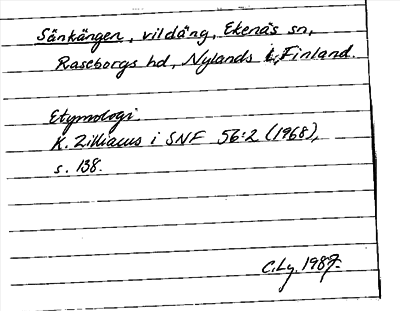 Sänkängen, vildäng, Ekenäs sn,
Raseborgs hd, Nylands l, Finland.
Etymologi.
K. Zilliacus i SNF 56:2 (1968),
s. 138.
C.Ly. 1987.